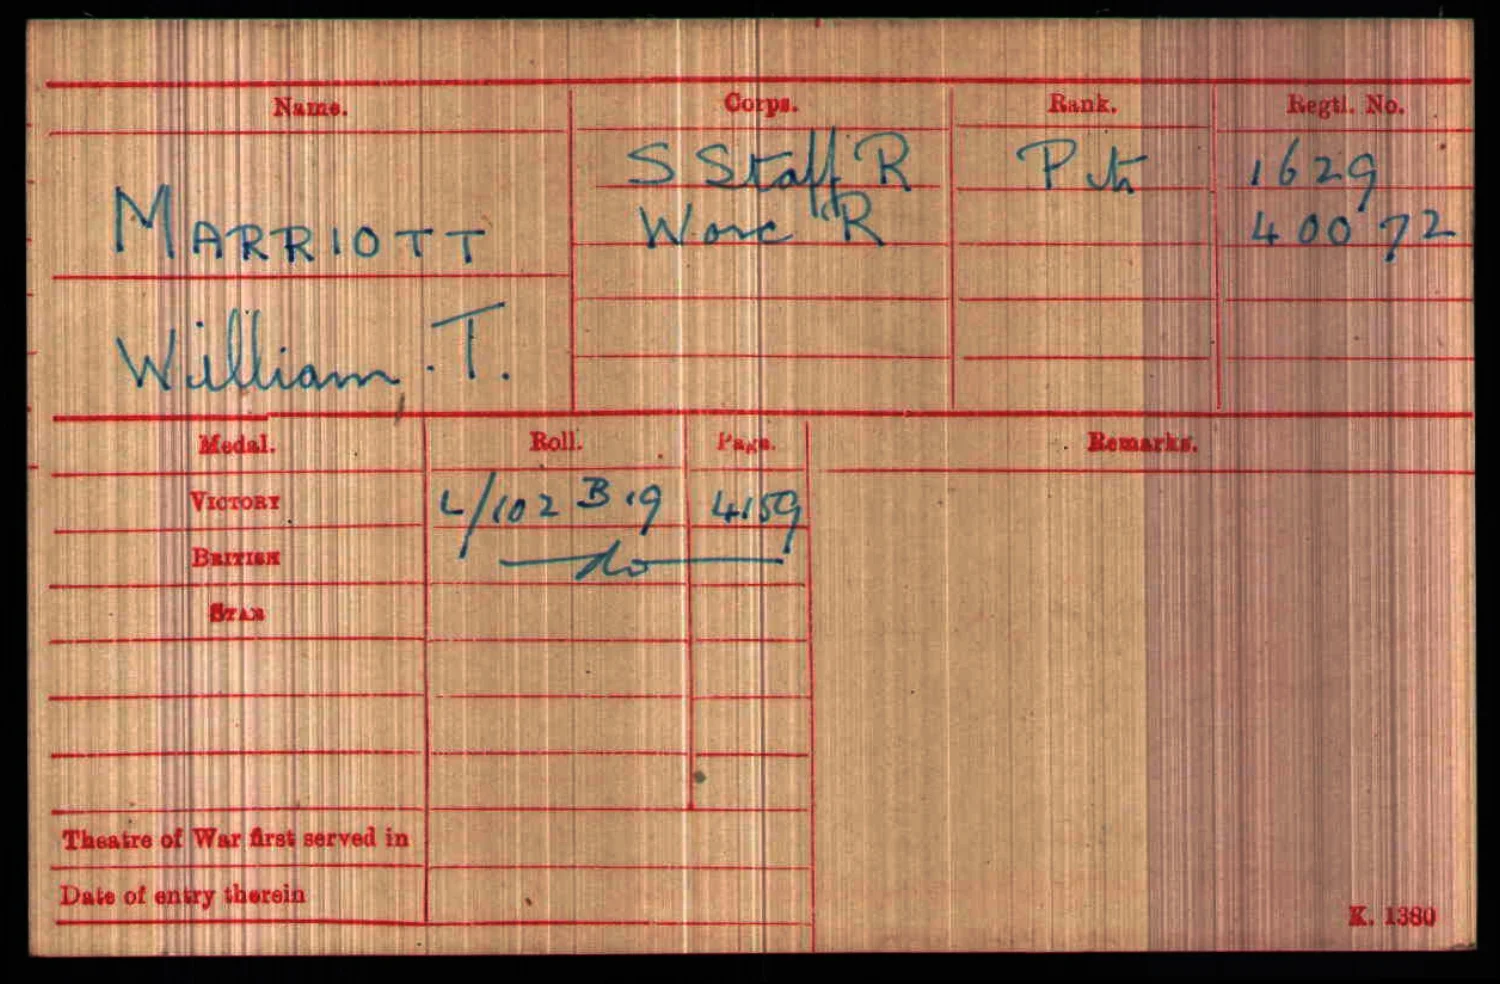 Name. Corps. Rank. Regtl. No.
S Staff R Pte 1629
MARRIOTT Worc R 40072
William. T.
Medal. Roll. Page. Remarks.
VICTORY L/102 B19 4159
BRITISH —do—
STAR
Theatre of War first served in
Date of entry therein
K. 1380